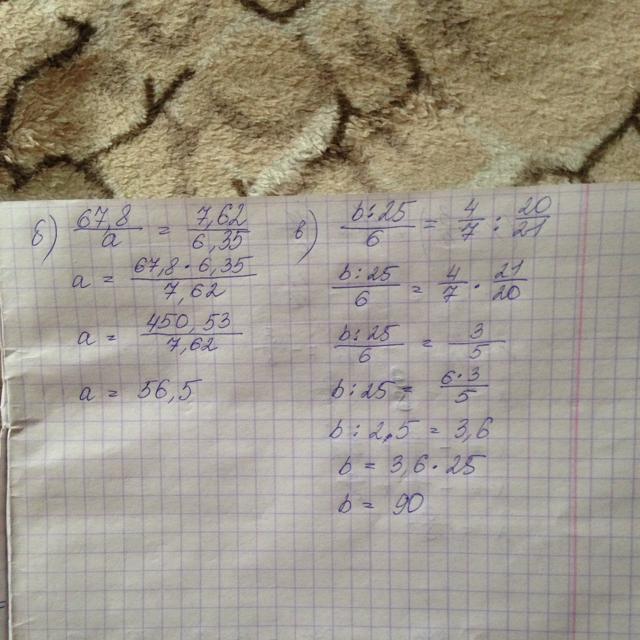 б) 67,8/a = 7,62/6,35
a = 67,8·6,35/7,62
a = 450,53/7,62
a = 56,5
в) b:25/6 = 4/7 : 20/21
b:25/6 = 4/7 · 21/20
b:25/6 = 3/5
b:25 = 6·3/5
b:2,5 = 3,6
b = 3,6·25
b = 90